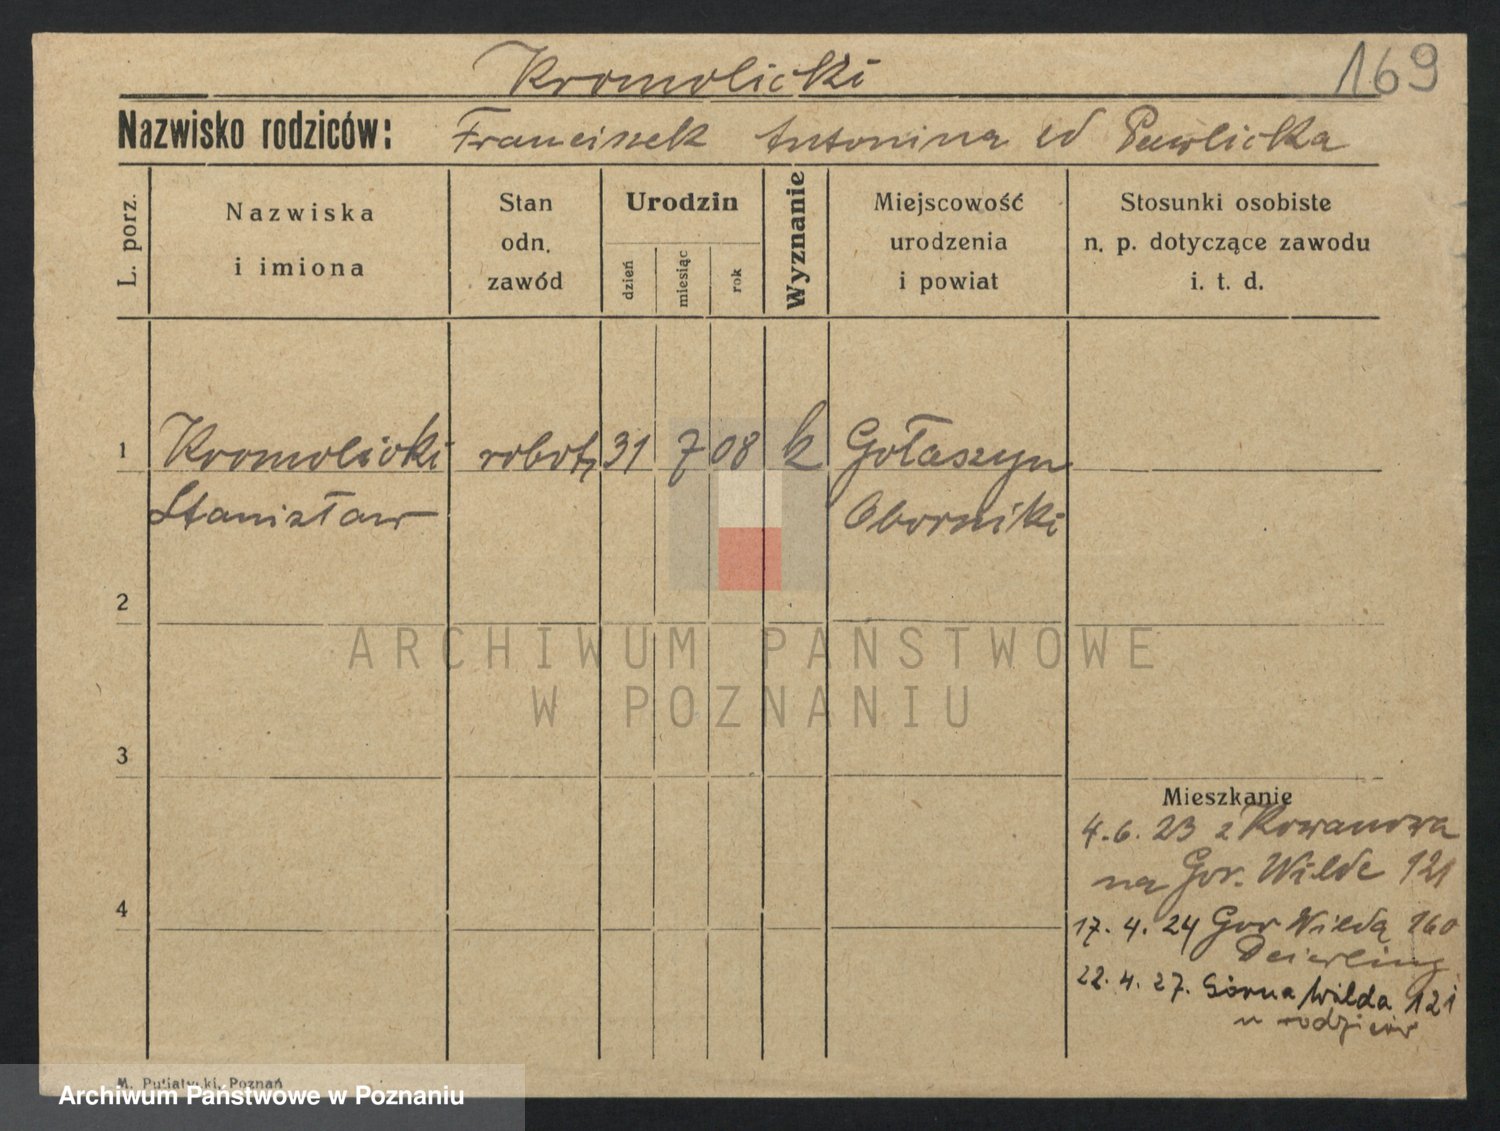 Kromolicki
169
Nazwisko rodziców: Franciszek Antonina zd Pawlicka
L. porz.
Nazwiska
i imiona
Stan
odn.
zawód
Urodzin
dzień
miesiąc
rok
Wyznanie
Miejscowość
urodzenia
i powiat
Stosunki osobiste
n. p. dotyczące zawodu
i. t. d.
1 Kromolicki robotn 31 7 08 k Gołaszyn
Stanisław Oborniki
2
ARCHIWUM PAŃSTWOWE
W POZNANIU
3
Mieszkanie
4.6.23 z Rożnowa
na Gór. Wilde 121
4
17.4.24 Gor Wildą 160
Deierling
22.4.27. Górna Wilda 121
u rodziców
M. Putiatycki, Poznań
Archiwum Państwowe w Poznaniu